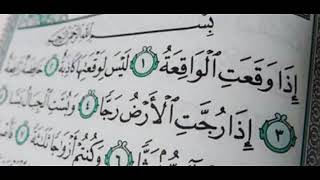 بِسْمِ ٱللَّهِ ٱلرَّحْمَٰنِ ٱلرَّحِيمِ
إِذَا وَقَعَتِ ٱلْوَاقِعَةُ ١ لَيْسَ لِوَقْعَتِهَا كَاذِبَةٌ ٢ خَافِضَةٌ رَّافِعَةٌ
٣ إِذَا رُجَّتِ ٱلْأَرْضُ رَجًّا ٤ وَبُسَّتِ ٱلْجِبَالُ بَسًّا
وَكُنتُمْ أَزْوَٰجًا ثَلَٰثَةً ٧
٦